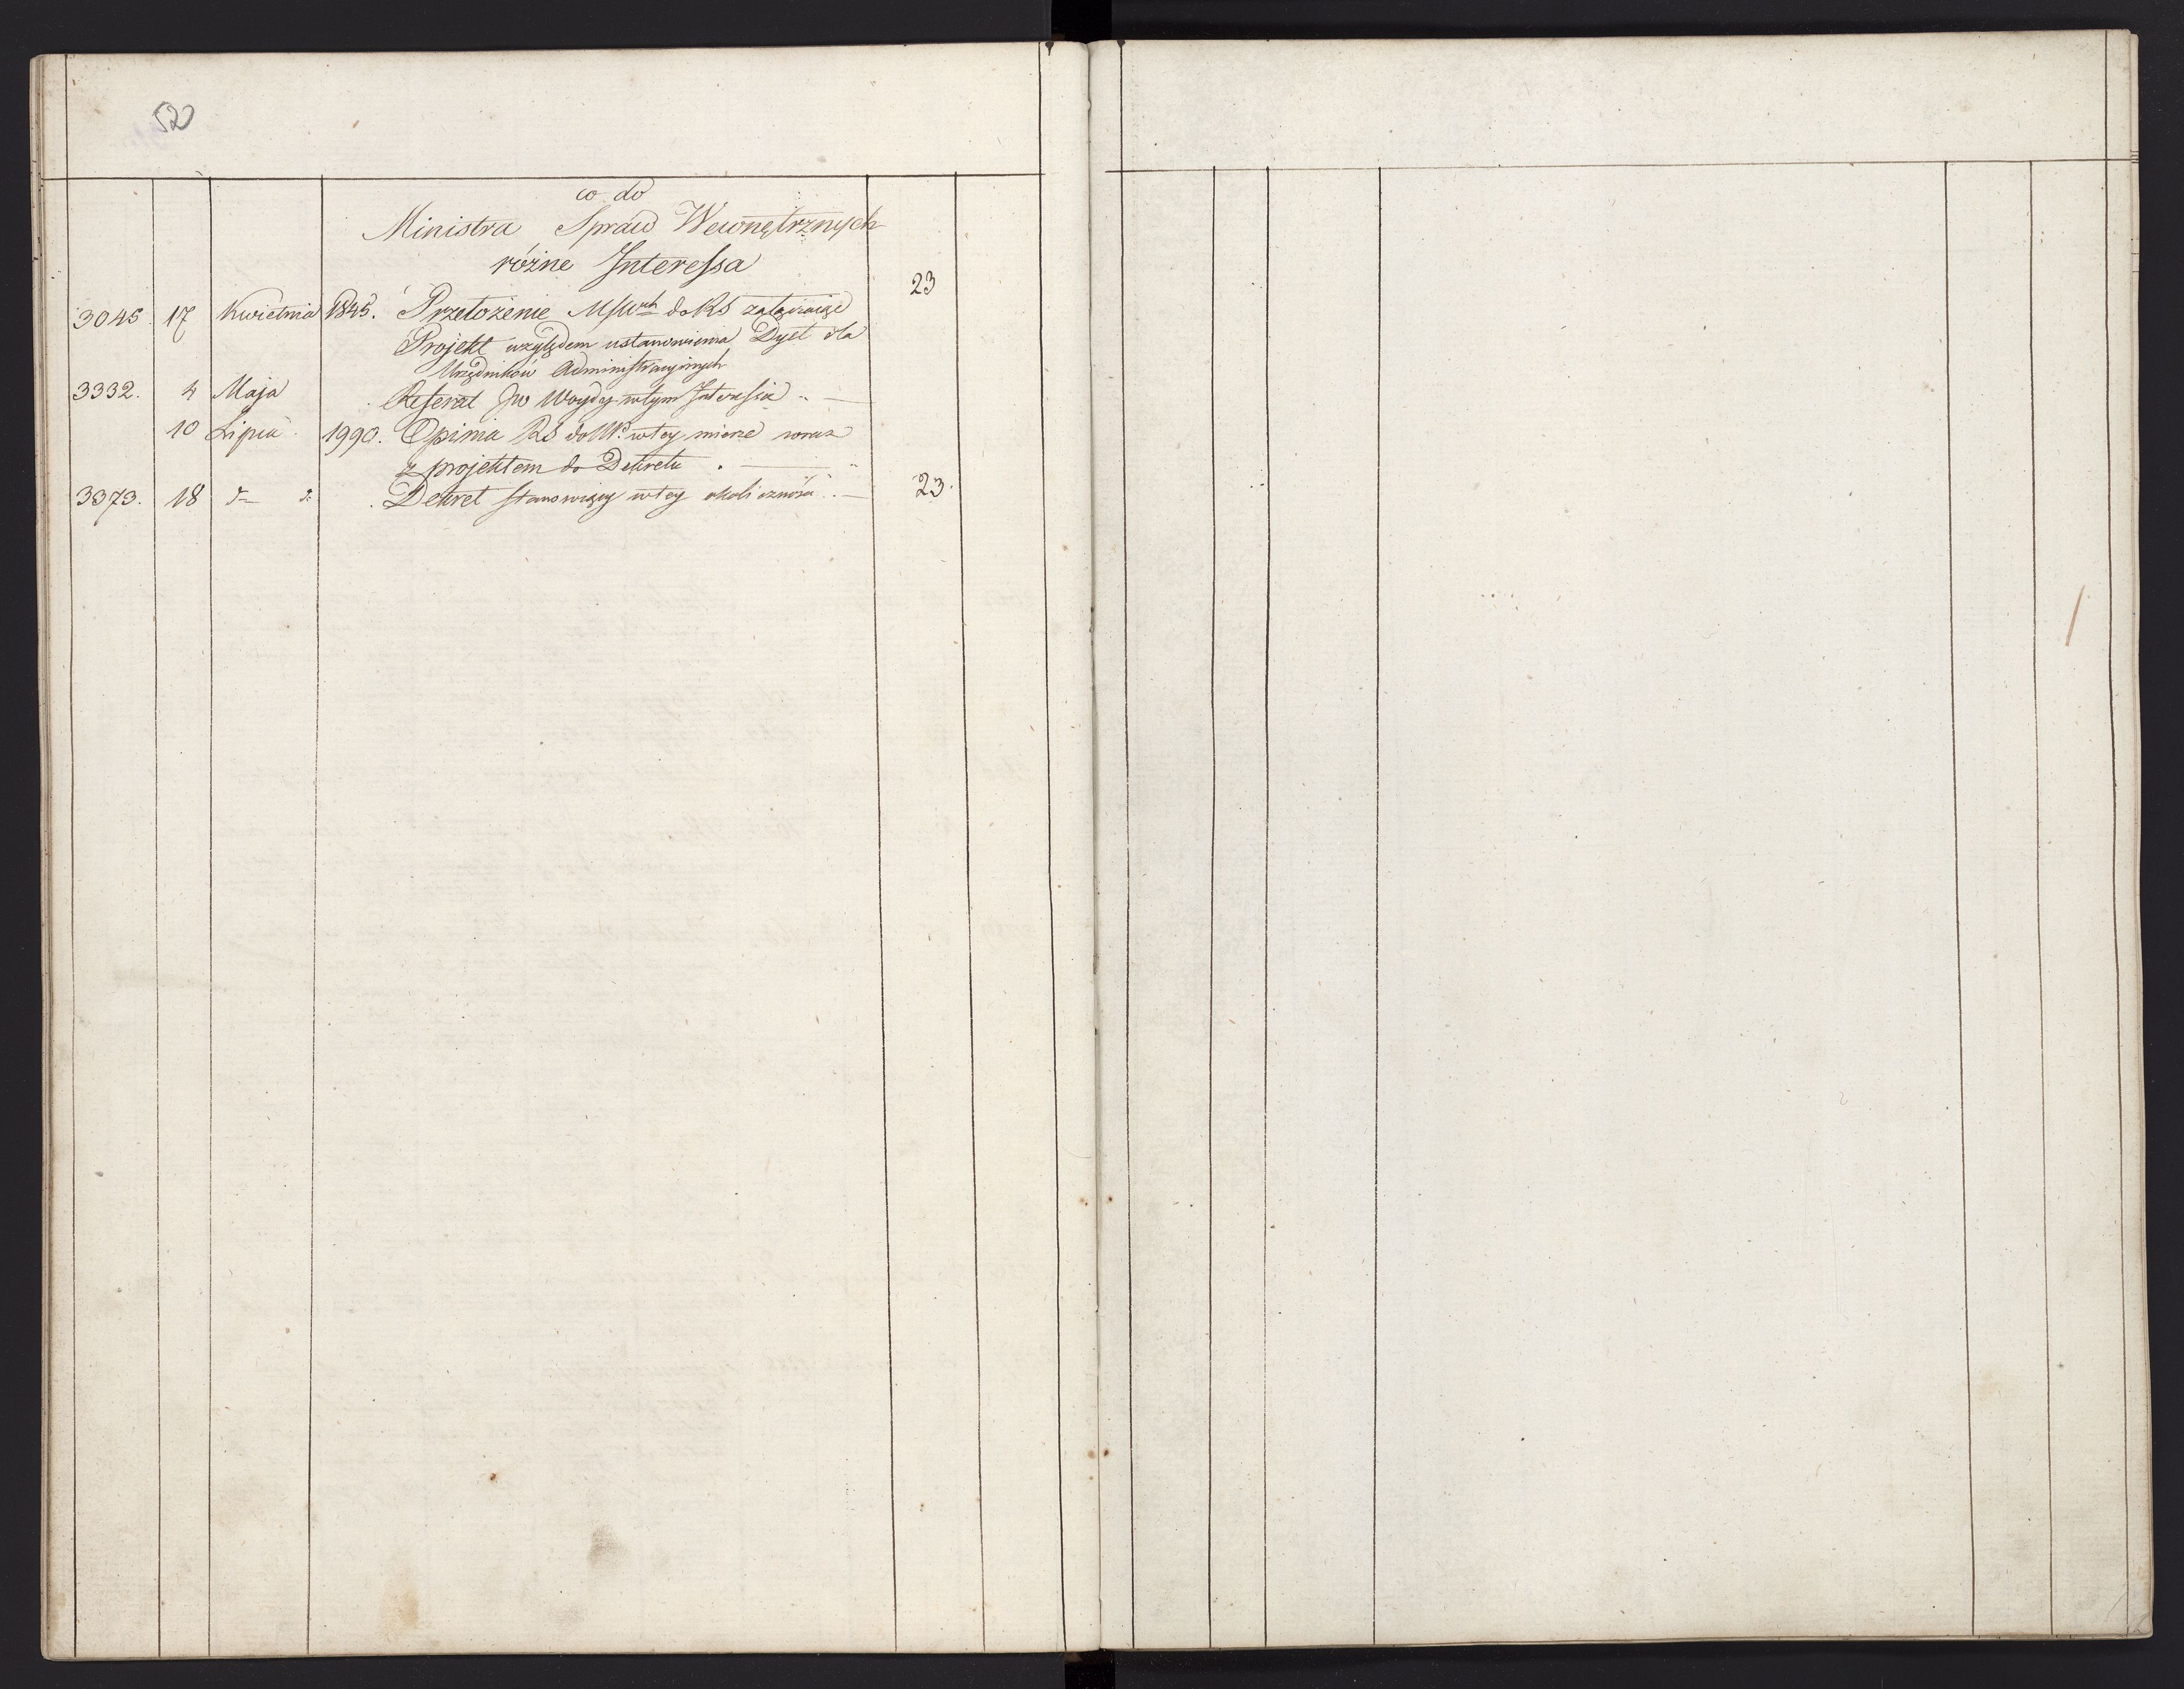 52
co do
Ministra Spraw Wewnętrznych
różne Interessa
23
3045. 17 Kwietnia 1845. Przełożenie MSWch do RS załączaiące
Projekt względem ustanowienia Dyet dla
Urzędników Administracyinych
3332. 4 Maja Referat JW Woydy w tym Interesie
10 Lipca 1990. Opinia RS do w tey mierze wraz
z projektem do Dekretu
3373. 18 d° d° Dekret stanowiący w tey okoliczności 23.